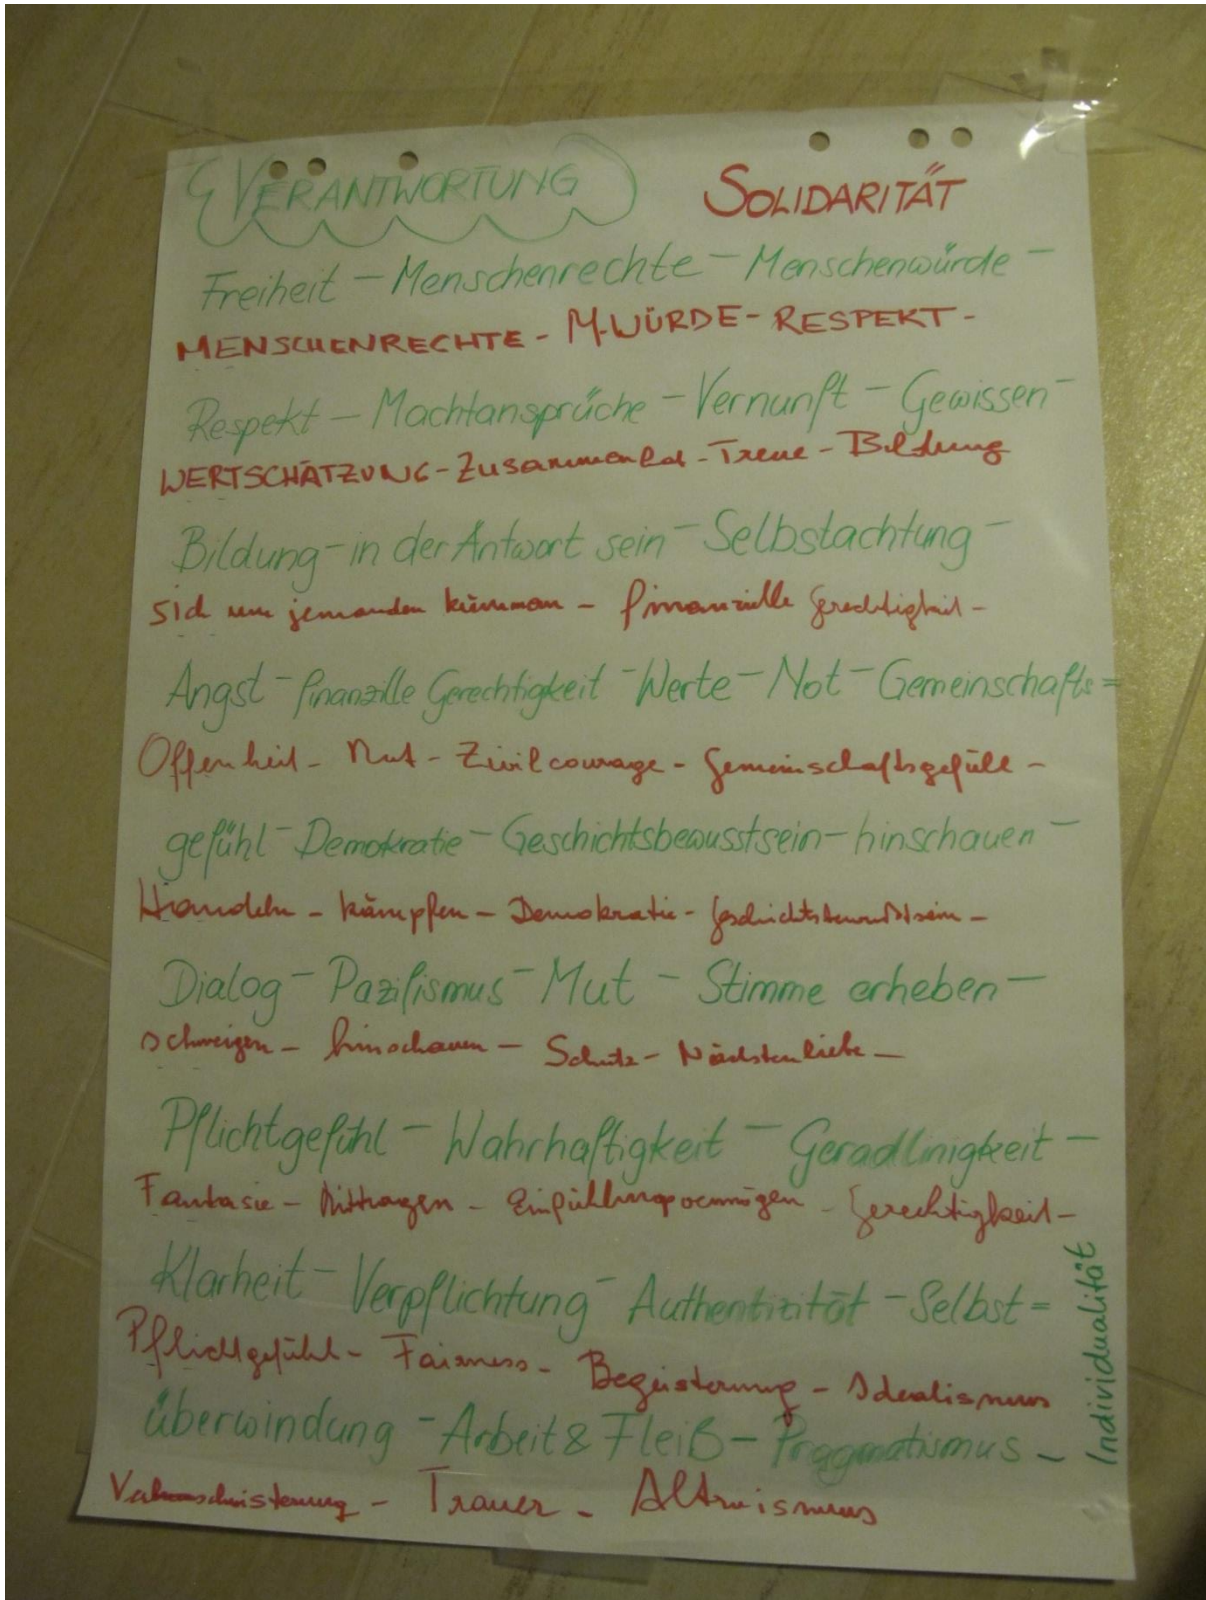 VERANTWORTUNG SOLIDARITÄT
Freiheit – Menschenrechte – Menschenwürde –
MENSCHENRECHTE - M-WÜRDE - RESPEKT -
Respekt – Machtansprüche – Vernunft – Gewissen –
WERTSCHÄTZUNG - Zusammenhal - Treue - Bildung
Bildung – in der Antwort sein – Selbstachtung –
Sich um jemanden kümmern - finanzielle Gerechtigkeit -
Angst – finanzille Gerechtigkeit – Werte – Not – Gemeinschafts=
Offenheit - Mut - Zivilcourage - Gemeinschaftsgefühl -
gefühl – Demokratie – Geschichtsbewusstsein – hinschauen –
Handeln - kämpfen - Demokratie - Geschichtsbewußtsein -
Dialog – Pazifismus – Mut – Stimme erheben –
schweigen - hinschauen - Schutz - Nächstenliebe -
Pflichtgefühl – Wahrhaftigkeit – Geradlinigkeit –
Fantasie - Mittragen - Einfühlungsvermögen - Gerechtigkeit -
Klarheit – Verpflichtung – Authentizität – Selbst=
Pflichtgefühl - Fairness - Begeisterung - Idealismus
überwindung – Arbeit & Fleiß – Pragmatismus –
- Trauer - Altruismus
Individualität